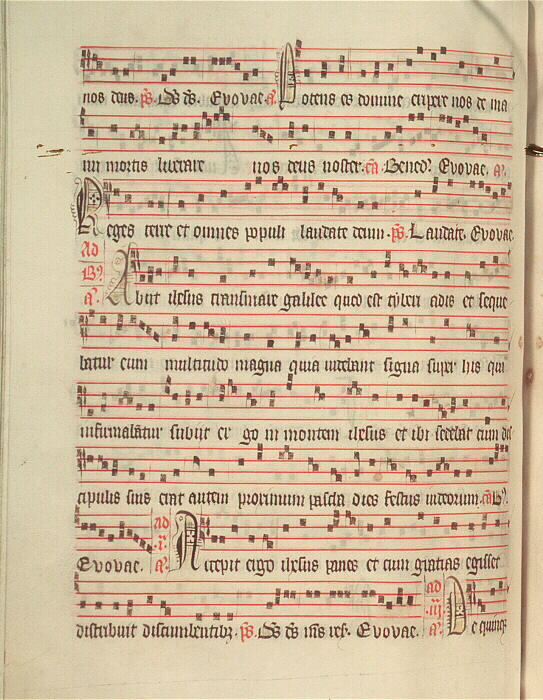 nos deus. ps. Ds ds. Evovae. a. Potens es domine eripere nos de ma
nu mortis liberare nos deus noster. ca. Bened. Evovae. a.
Reges terre et omnes populi laudate deum. ps. Laudate. Evovae.
Ad
B.
a. Abiit ihesus transmare galilee quod est tyberi adis et seque
batur eum multitudo magna quia videbant signa super his qui
infirmabãtur subiit er go in montem ihesus et ibi sedebat cum dis
cipulis suis erat autem proximum pascha dies festus iudeorum. ca. B.
Evovae. ad
a. Accepit ergo ihesus panes et cum gratias egisset
distribuit discumbentibz. ps. Ds ds ms res. Evovae. ad
iii
a. De quinqz